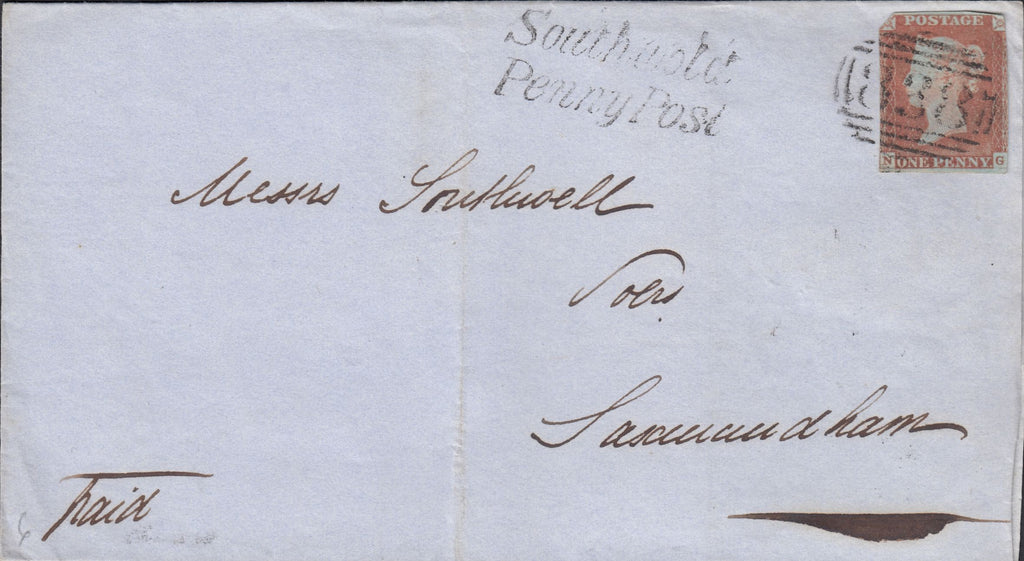 Southwold
Penny Post
POSTAGE
N ONE PENNY G
Messrs Southwell
Saxmundham
paid